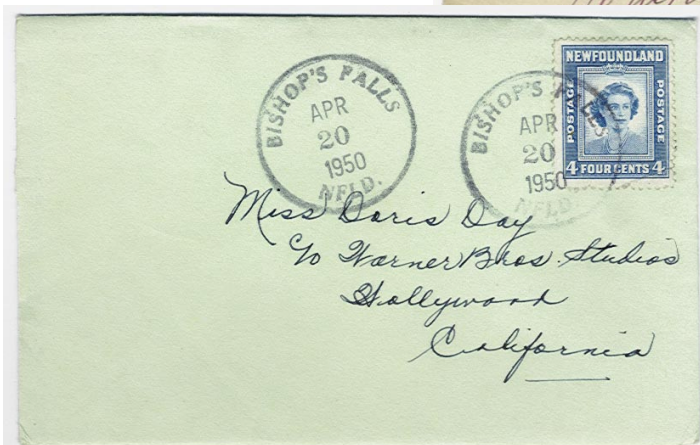 BISHOP'S FALLS
APR
20
1950
NFLD.
BISHOP'S FALLS
APR
20
1950
NFLD
NEWFOUNDLAND
POSTAGE
POSTAGE
4 FOUR CENTS 4
Miss Doris Day
c/o Warner Bros. Studios
Hollywood
California